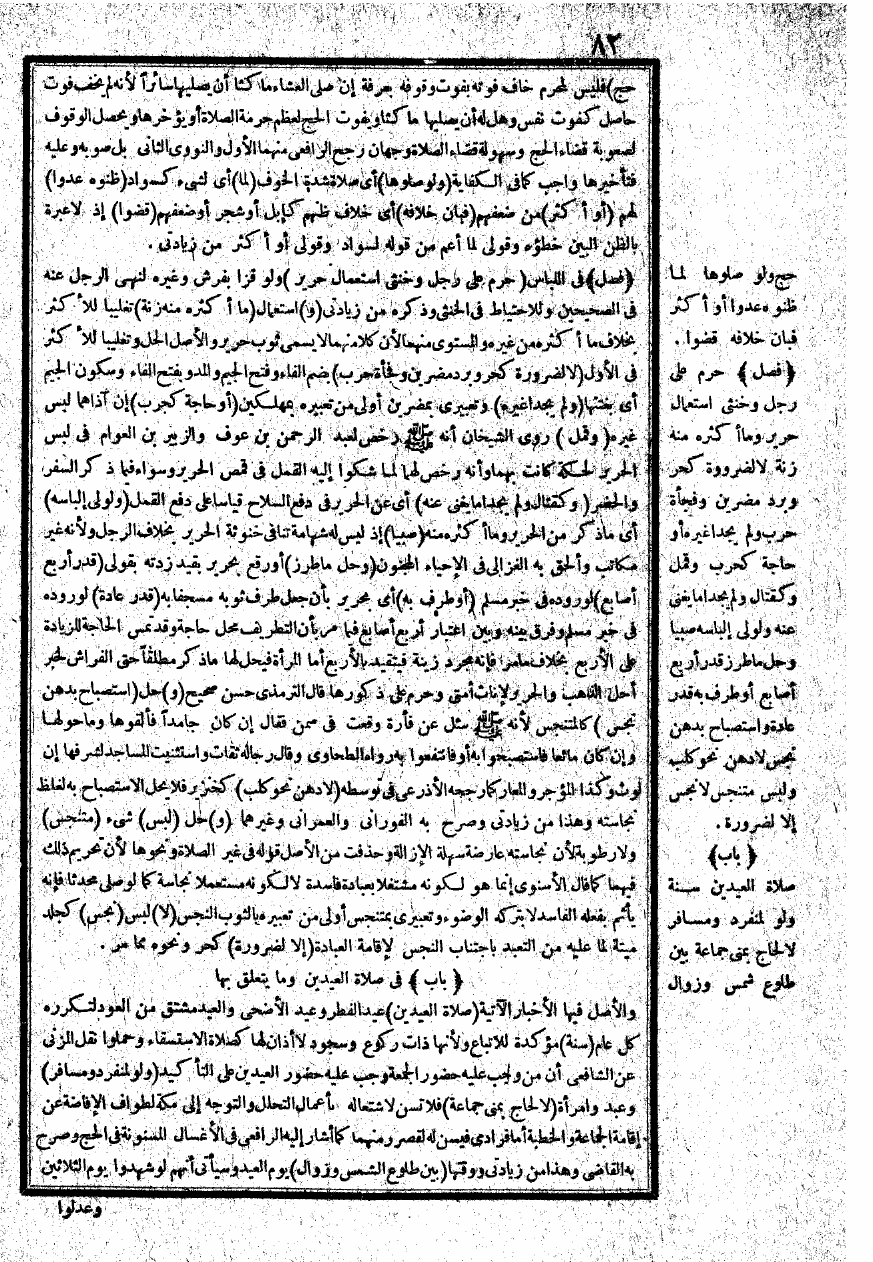 ٨٢
حج) فليس لمحرم خاف فوته بفوت وقوفه بعرفة إن صلى العشاء ماكثا أن يصليها سائراً لأنه لم يخف فوت
حاصل كفوت نفس وهل له أن يصليها ماكثا ويفوت الحج لعظم حرمة الصلاة أو يؤخرها ويحصل الوقوف
لصعوبة قضاء الحج وسهولة قضاء الصلاة وجهان رجح الرافعى منهما الأول والنووى الثانى بل صوبه وعليه
فتأخيرها واجب كما فى الكفاية (ولو صلوها) أى صلاة شدة الخوف (لما) أى لشىء كسواد (ظنوه عدوا)
لهم (أو أكثر) من ضعفهم (فبان خلافه) أى خلاف ظنهم كإبل أو شجر أو ضعفهم (قضوا) إذ لا عبرة
بالظن البين خطؤه وقولى لما أعم من قوله لسواد وقولى أو أكثر من زيادتى .
﴿فصل﴾ فى اللباس (حرم على رجل وخنثى استعمال حرير) ولو قزا بفرش وغيره لنهى الرجل عنه
فى الصحيحين وللاحتياط فى الخنثى وذكره من زيادتى (و) استعمال (ما أكثره منه زنة) تغليبا للأكثر
بخلاف ما أكثره من غيره والمستوى منهما لأن كلا منهما لا يسمى ثوب حرير والأصل الحل وتغليبا للأكثر
فى الأول (لا لضرورة كحر وبرد مضرين وفجأة حرب) بضم الفاء وفتح الجيم والمد وبفتح الفاء وسكون الجيم
أى بغتتها (ولم يجد اغيره) وتعبيرى بمضرين أولى من تعبيره بمهلكين (أو حاجة كجرب) إن آذاهما لبس
غيره (وقمل) روى الشيخان أنه ﷺ رخص لعبد الرحمن بن عوف والزبير بن العوام فى لبس
الحرير لحكة كانت بهما وأنه رخص لهما لما شكوا إليه القمل فى قمص الحرير وسواء فيما ذكر السفر
والحضر (وكقتال ولم يجدا ما يغنى عنه) أى عن الحرير فى دفع السلاح قياسا على دفع القمل (ولولى إلباسه)
أى ما ذكر من الحرير وما أكثره منه (صبيا) إذ ليس له شهامة تنافى خنوثة الحرير بخلاف الرجل ولأنه غير
مكلف وألحق به الغزالى فى الإحياء المجنون (وحل ما طرز) أو رقع بحرير بقيد زدته بقولى (قدر أربع
أصابع) لوروده فى خبر مسلم (أو طرف به) أى بحرير بأن جعل طرف ثوبه مسجفا به (قدر عادة) لوروده
فى خبر مسلم وفرق بينه وبين اعتبار أربع أصابع فيما مر بأن التطريف محل حاجة وقد تمس الحاجة للزيادة
على الأربع بخلاف ما مر فإنه مجرد زينة فيتقيد بالأربع أما المرأة فيحل لها ما ذكر مطلقاً حتى الفراش لخبر
أحل الذهب والحرير لإناث أمتى وحرم على ذكورها قال الترمذى حسن صحيح (و) حل (استصباح بدهن
نجس) كالمتنجس لأنه ﷺ سئل عن فأرة وقعت فى سمن فقال إن كان جامداً فألقوها وما حولها
وإن كان مائعا فاستصبحوا به أو فانتفعوا به رواه الطحاوى وقال رجاله ثقات واستثنيت المساجد لشرفها إن
لوث وكذا المؤجر والمعار كما رجحه الأذرعى فى توسطه (لا دهن نحو كلب) كخنزير فلا يحل الاستصباح به لغلظ
نجاسته وهذا من زيادتى وصرح به الفورانى والعمرانى وغيرهما (و) حل (لبس) شىء (متنجس)
ولا رطوبة لأن نجاسته عارضة سهلة الإزالة وحذفت من الأصل قوله فى غير الصلاة ونحوها لأن تحريم ذلك
فيهما كما قال الأسنوى إنما هو لكونه مشتغلا بعبادة فاسدة لا لكونه مستعملا نجاسة كما لو صلى محدثا فإنه
يأثم بفعله الفاسد لا بتركه الوضوء وتعبيرى بمتنجس أولى من تعبيره بالثوب النجس (لا) لبس (نجس) كجلد
ميتة لما عليه من التعبد باجتناب النجس لإقامة العبادة (إلا لضرورة) كحر ونحوه مما مر .
﴿باب﴾ فى صلاة العيدين وما يتعلق بها
والأصل فيها الأخبار الآتية (صلاة العيدين) عيد الفطر وعيد الأضحى والعيد مشتق من العود لتكرره
كل عام (سنة) مؤكدة للاتباع ولأنها ذات ركوع وسجود لا أذان لها كصلاة الاستسقاء وحملوا نقل المزنى
عن الشافعى أن من وجب عليه حضور الجمعة وجب عليه حضور العيدين على التأكيد (ولو لمنفرد ومسافر)
وعبد وامرأة (لا لحاج بمنى جماعة) فلا تسن لاشتغاله بأعمال التحلل والتوجه إلى مكة لطواف الإفاضة عن
إقامة الجماعة والخطبة أما فرادى فيسن له لقصر زمنهما كما أشار إليه الرافعى فى الأغسال المسنونة فى الحج وصرح
به القاضى وهذا من زيادتى ووقتها (بين طلوع الشمس وزوال) يوم العيد وسيأتى أنهم لو شهدوا يوم الثلاثين
وعدلوا
حج ولو صلوها لما
ظنوه عدوا أو أكثر
فبان خلافه قضوا .
﴿فصل﴾ حرم على
رجل وخنثى استعمال
حرير وما أكثره منه
زنة لا لضرورة كحر
وبرد مضرين وفجأة
حرب ولم يجد اغيره أو
حاجة كجرب وقمل
وكقتال ولم يجدا ما يغنى
عنه ولولى إلباسه صبيا
وحل ما طرز قدر أربع
أصابع أو طرف به قدر
عادة واستصباح بدهن
نجس لا دهن نحو كلب
ولبس متنجس لا نجس
إلا لضرورة .
﴿باب﴾
صلاة العيدين سنة
ولو لمنفرد ومسافر
لا لحاج بمنى جماعة بين
طلوع شمس وزوال